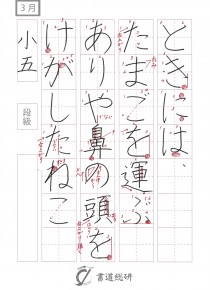 3月
ときには、
たまごを運ぶ
ありや鼻の頭を
けがしたねこ
小五
段級
書道総研